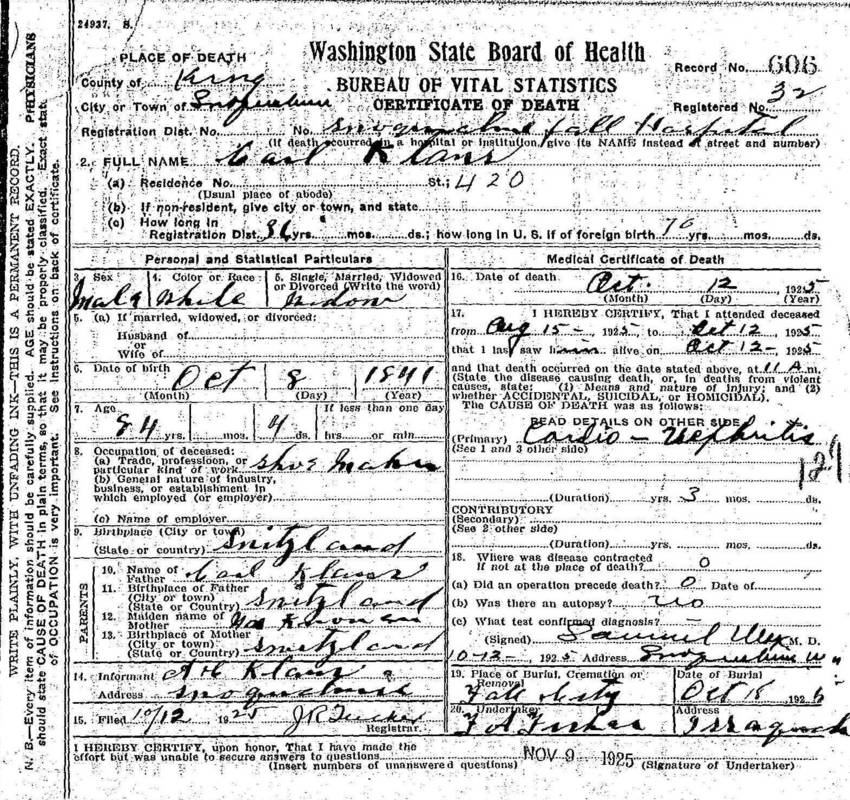 24937. S.
PLACE OF DEATH
Washington State Board of Health
Record No. 606
County of King
BUREAU OF VITAL STATISTICS
City or Town of
CERTIFICATE OF DEATH
Registered No. 32
Registration Dist. No. No. Fall Hospital
(If death occurred in a hospital or institution, give its NAME instead of street and number)
2. FULL NAME Carl Klaus
(a) Residence No. St.; 420
(Usual place of abode)
(b) If non-resident, give city or town, and state
(c) How long in
Registration Dist. 36 yrs. mos. ds.; how long in U.S. if of foreign birth 70 yrs. mos. ds.
Personal and Statistical Particulars
3. Sex 4. Color or Race 5. Single, Married, Widowed
or Divorced (Write the word)
Male White Widow
5. (a) If married, widowed, or divorced:
Husband of
or
Wife of
6. Date of birth Oct 8 1841
(Month) (Day) (Year)
7. Age If less than one day
84 yrs. mos. 4 ds. hrs. or min.
8. Occupation of deceased:
(a) Trade, profession, or
particular kind of work Shoe Maker
(b) General nature of industry,
business, or establishment in
which employed (or employer)
(c) Name of employer
9. Birthplace (City or town)
(State or country) Switzland
PARENTS
10. Name of
Father Carl Klaus
11. Birthplace of Father
(City or town)
(State or Country) Switzland
12. Maiden name of
Mother
13. Birthplace of Mother
(City or town)
(State or Country) Switzland
14. Informant Klaus
Address
15. Filed 10/12 1925 J R Tucker
Registrar.
Medical Certificate of Death
16. Date of death Oct. 12 1925
(Month) (Day) (Year)
17. I HEREBY CERTIFY, That I attended deceased
from Aug 15 - 1925 and to Oct 12 1925
that I last saw him alive on Oct 12 - 1925
and that death occurred on the date stated above, at 11 A.m.
(State the disease causing death, or, in deaths from violent
causes, state: (1) Means and nature of injury; and (2)
whether ACCIDENTAL, SUICIDAL, or HOMICIDAL).
The CAUSE OF DEATH was as follows:
READ DETAILS ON OTHER SIDE
(Primary) Cardio - Nephritis
(See 1 and 3 other side)
129
(Duration) yrs. 3 mos. ds.
CONTRIBUTORY
(Secondary)
(See 2 other side)
(Duration) yrs. mos. ds.
18. Where was disease contracted
if not at the place of death? 0
(a) Did an operation precede death? 0 Date of
(b) Was there an autopsy? no
(c) What test confirmed diagnosis? -
(Signed) Samuel M.D.
10-12- 1925 Address
19. Place of Burial, Cremation or
Removal Date of Burial
Fall City Oct 1926
20. Undertaker Address
Issaquah
I HEREBY CERTIFY, upon honor, That I have made the
effort but was unable to secure answers to questions
(Insert numbers of unanswered questions) NOV 9 1925 (Signature of Undertaker)
WRITE PLAINLY, WITH UNFADING INK—THIS IS A PERMANENT RECORD.
N. B.—Every item of information should be carefully supplied. AGE should be stated EXACTLY. PHYSICIANS
should state CAUSE OF DEATH in plain terms, so that it may be properly classified. Exact stat.
of OCCUPATION is very important. See instructions on back of certificate.